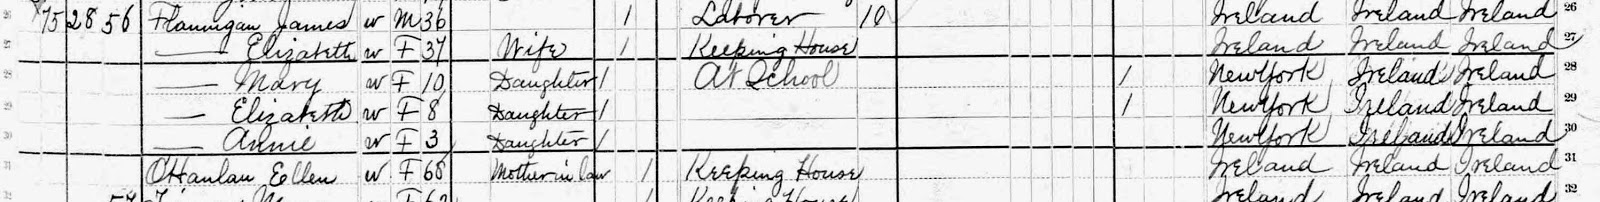 26 75 28 56 Flannigan James w M 36 1 Laborer 10 Ireland Ireland Ireland 26
27 — Elizabeth w F 37 Wife 1 Keeping House Ireland Ireland Ireland 27
28 — Mary w F 10 Daughter 1 At School 1 New York Ireland Ireland 28
29 — Elizabeth w F 8 Daughter 1 1 New York Ireland Ireland 29
30 — Annie w F 3 Daughter 1 New York Ireland Ireland 30
31 O'Hanlan Ellen w F 68 Mother in law 1 Keeping House Ireland Ireland Ireland 31
32 57 F 62 Keeping House Ireland Ireland Ireland 32